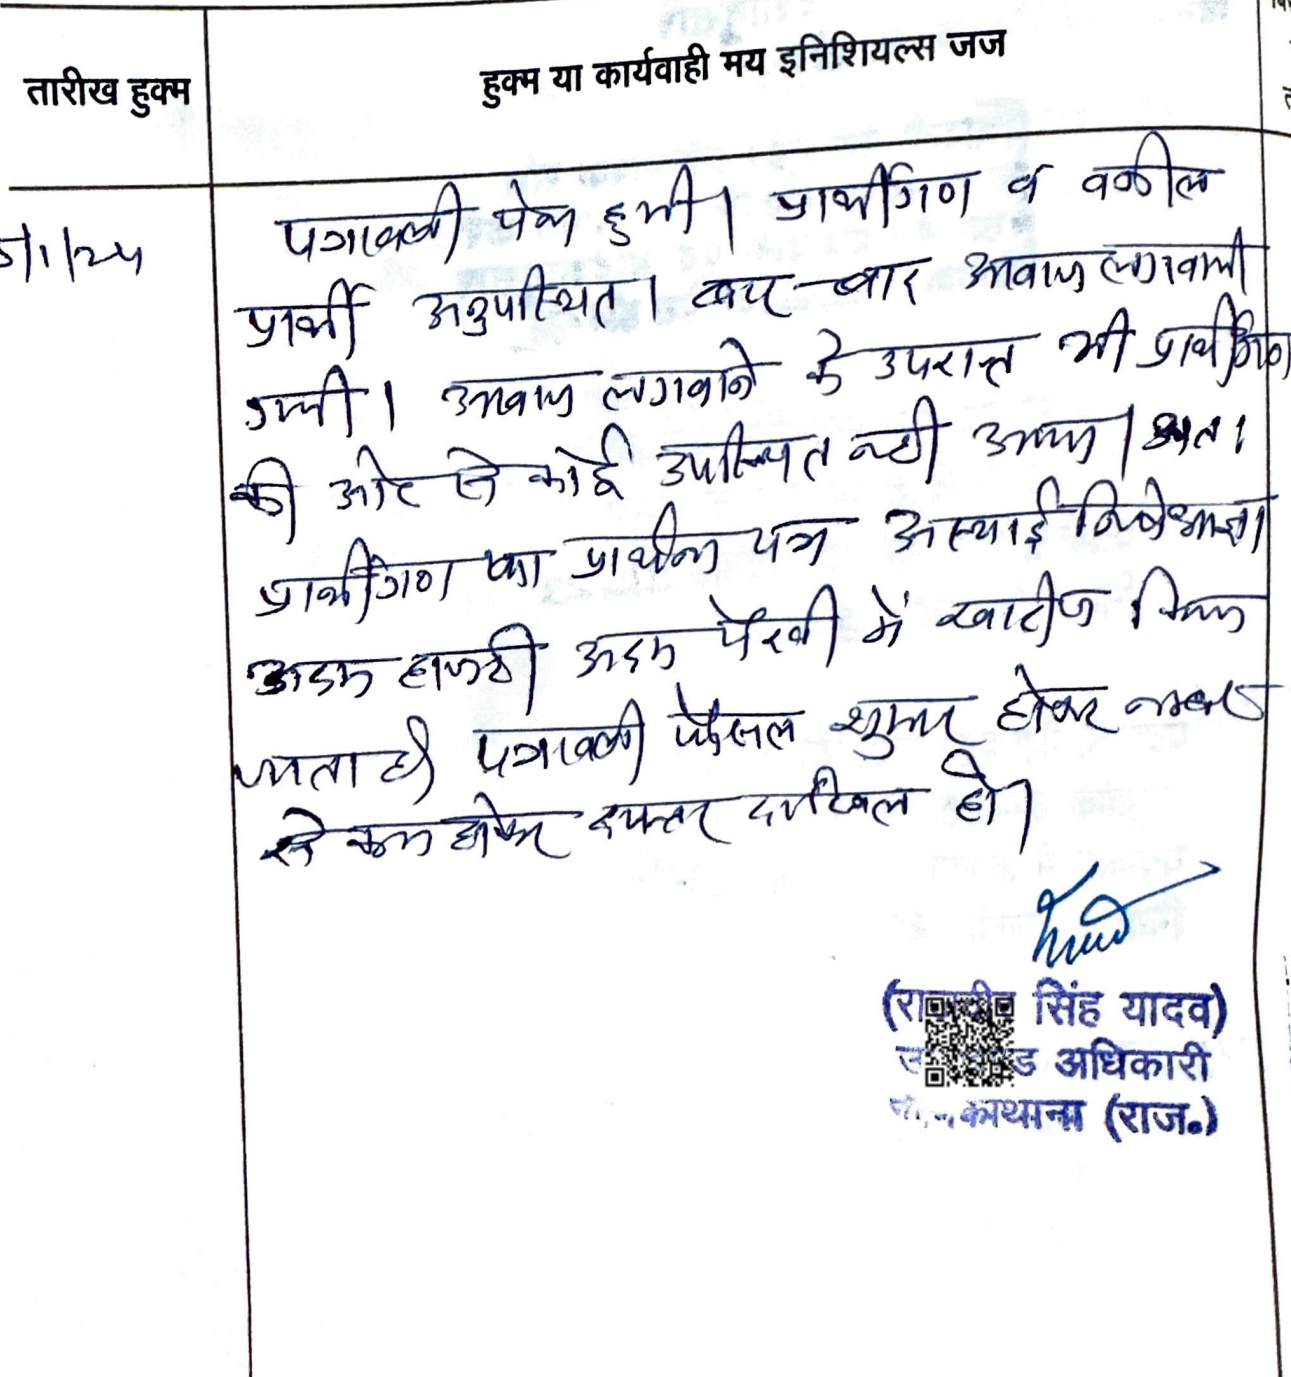 तारीख हुक्म
हुक्म या कार्यवाही मय इनिशियल्स जज
5/1/24
पत्रावली पेश हुयी। प्रार्थीगण व वकील
प्रार्थी अनुपस्थित। बार-बार आवाज लगवायी
गयी। आवाज लगवाने के उपरान्त भी प्रार्थीगण
की ओर से कोई उपस्थित नही आया। अतः
प्रार्थीगण का प्रार्थना पत्र अस्थाई निषेधाज्ञा
अदम हाजरी अदम पैरवी में खारीज किया
जाता है। पत्रावली फैसल शुमार होकर नम्बर
से कम होकर दफ्तर दाखिल हो।
सिंह यादव)
अधिकारी
काथाना (राज.)